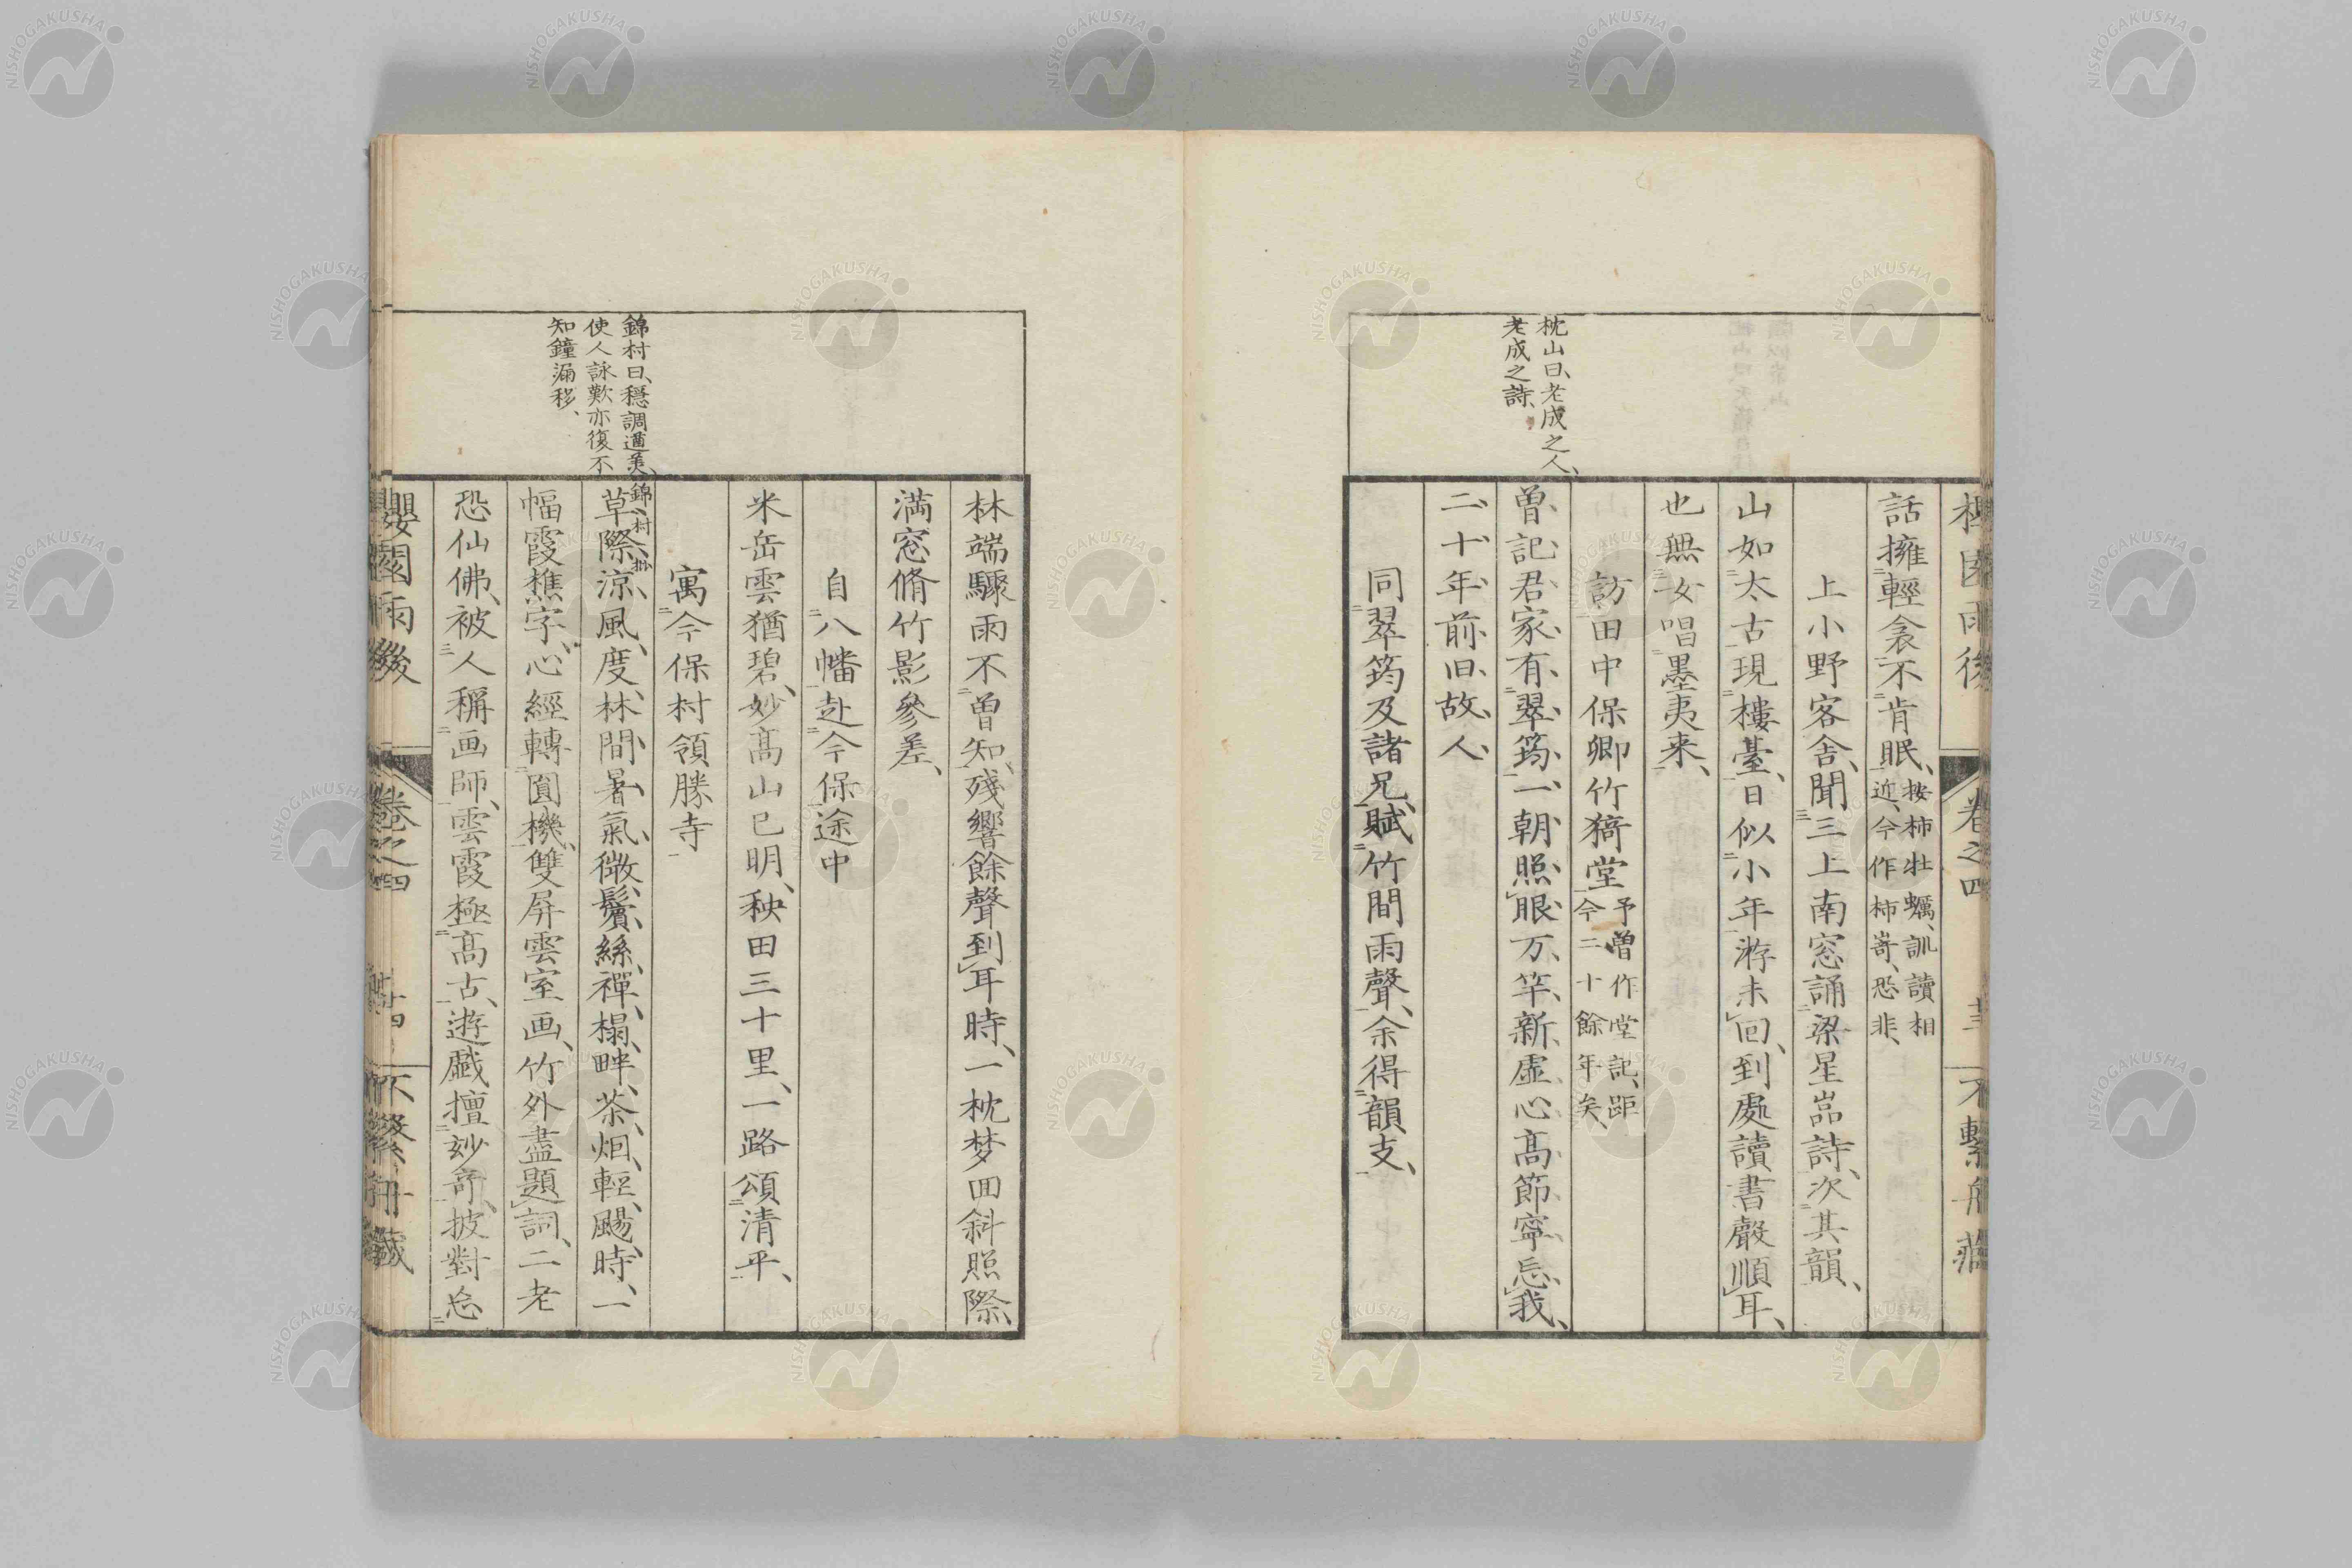 枕山曰、老成之人、
老成之詩、
話擁輕衾不肯眠、按柿牡蠣、訓讀相
近、今作柿嵜、恐非、
上小野客舎、聞三上南窓誦梁星嵓詩、次其韻、
山如太古現樓䑓、日似小年游未回、到處讀書聲順耳、
也無女唱墨夷来、
訪田中保卿竹猗堂予曽作堂記、距
今二十餘年矣、
曽記君家有翠筠、一朝照眼万竿新、虚心髙節寧忘我、
二十年前旧故人、
同翠筠及諸兄賦竹間雨聲、余得韻支、
錦村曰、穩調遒美、
使人詠歎、亦復不
知鐘漏移、
林端驟雨不曽知、残響餘聲到耳時、一枕梦回斜照際、
満窓脩竹影參差、
自八幡赴今保途中
米岳雲猶碧、妙髙山已明、秧田三十里、一路頌清平、
寓今保村領勝寺
錦村批
草際涼風度、林間暑氣微、鬢絲禪榻畔、茶烟輕颺時、一
幅霞樵字、心經轉圓機、雙屏雲室画、竹外盡題詞、二老
恐仙佛、被人稱画師、雲霞極髙古、遊戯擅妙奇、披對忘
櫻園雨後
卷之四
廿四
不繫舟藏